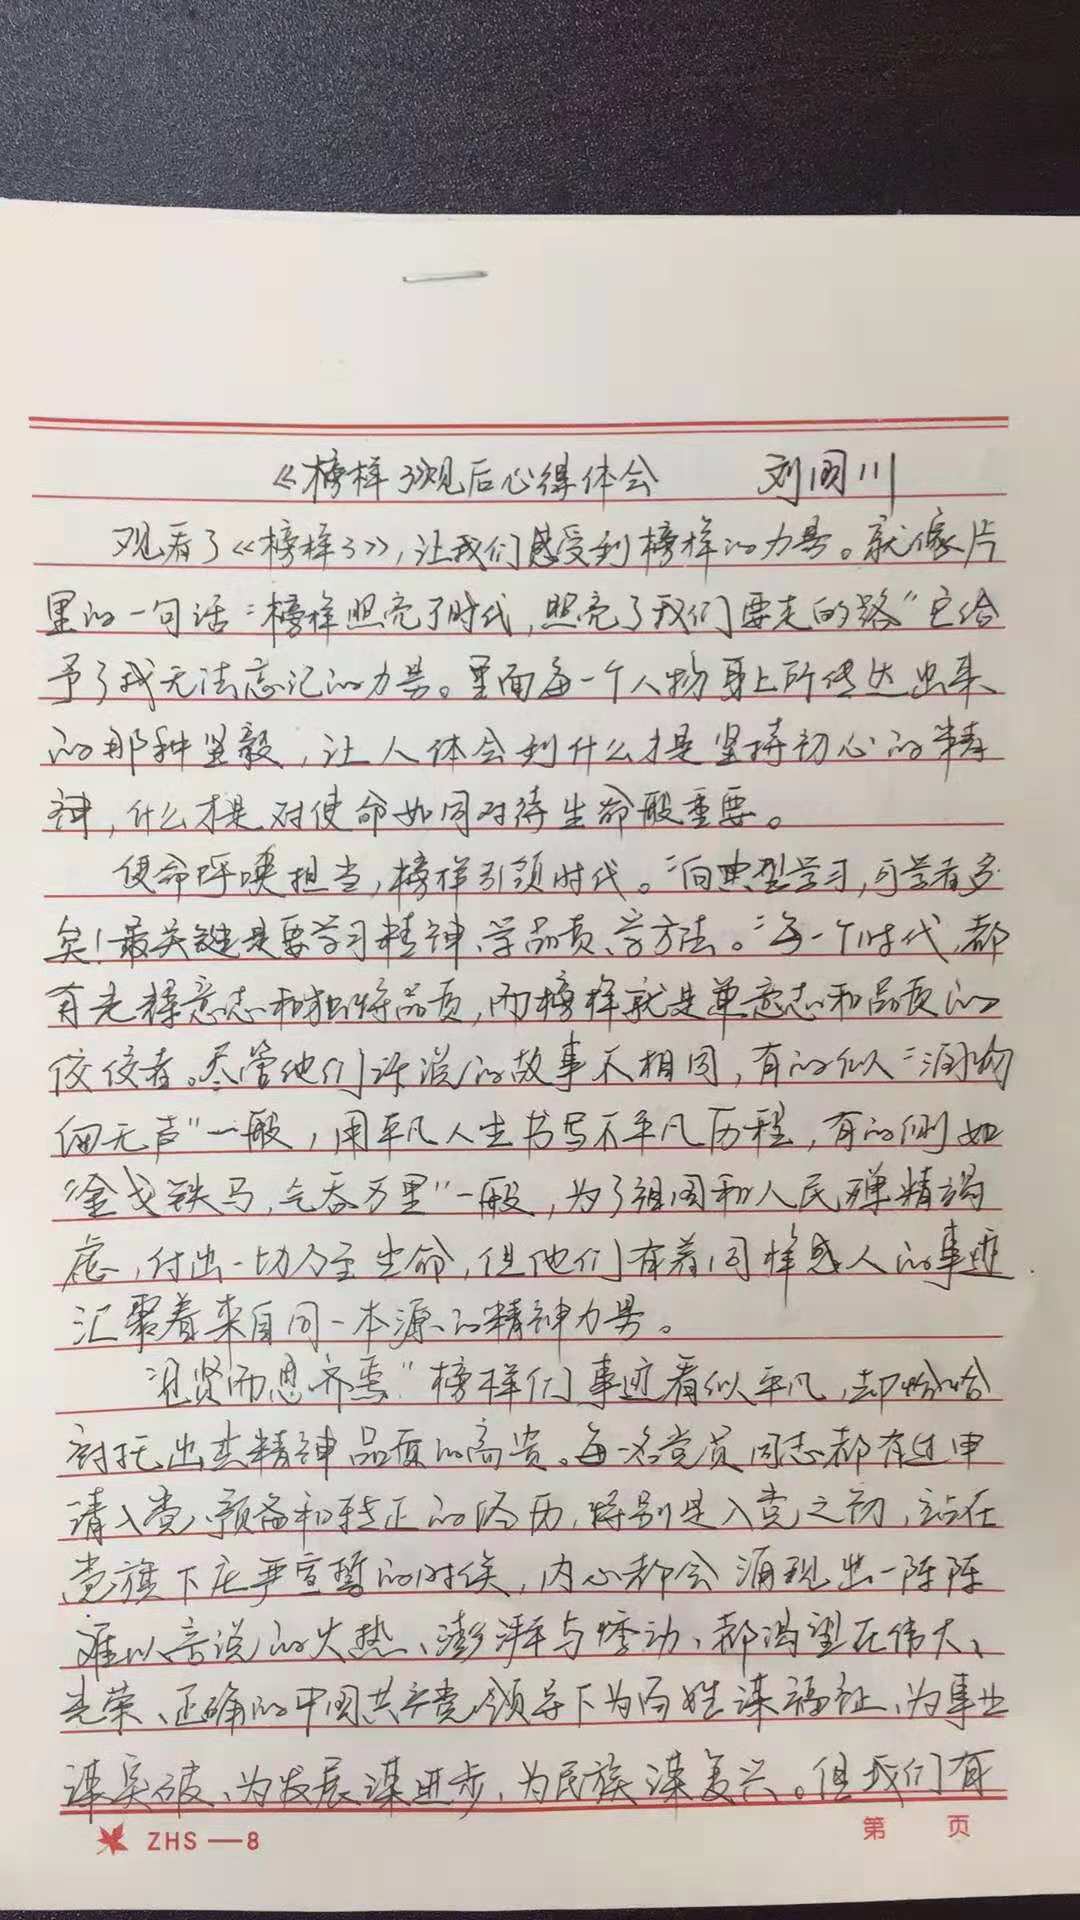 《榜样3观后心得体会 刘国川
观看了《榜样3》,让我们感受到榜样的力量。就像片
里的一句话"榜样照亮了时代,照亮了我们要走的路"它给
予了我无法忘记的力量。里面每一个人物身上所传达出来
的那种坚毅,让人体会到什么才是坚持初心的精
神,什么才是对使命如同对待生命般重要。
使命呼唤担当,榜样引领时代。"向典型学习,可学者多
矣!最关键是要学习精神、学品质、学方法。"每一个时代都
有先择意志和独特品质,而榜样就是单意志和品质的
佼佼者。尽管他们诉说的故事不相同,有的似"润物
细无声"一般,用平凡人生书写不平凡历程,有的则如
"金戈铁马,气吞万里"一般,为了祖国和人民殚精竭
虑,付出一切乃至生命,但他们有着同样感人的事迹
汇聚着来自同一本源的精神力量。
"见贤而思齐焉"榜样们事迹看似平凡,却恰恰
衬托出其精神品质的高贵。每一名党员同志都有过申
请入党、预备和转正的经历,特别是入党之初,站在
党旗下庄严宣誓的时候,内心都会涌现出一阵阵
难以言说的火热、澎湃与悸动、都渴望在伟大、
光荣、正确的中国共产党领导下为百姓谋福祉、为事业
谋突破、为发展谋进步、为民族谋复兴。但我们有
ZHS—8 第 页